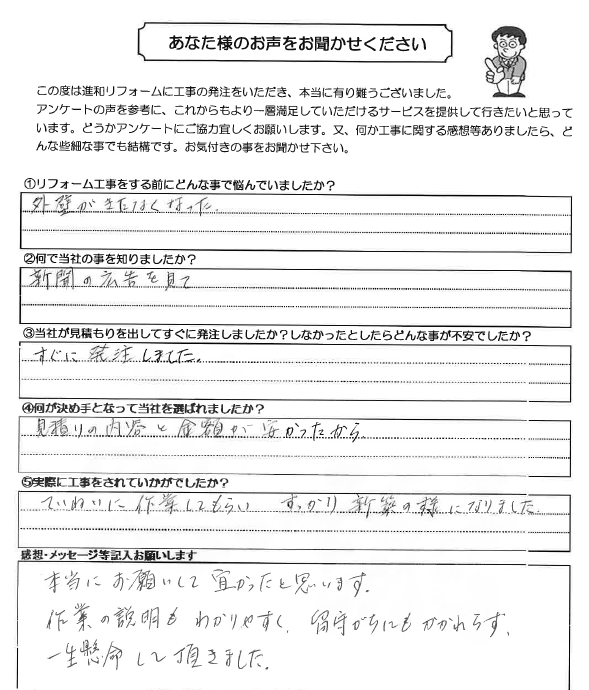 あなた様のお声をお聞かせください
この度は進和リフォームに工事の発注をいただき、本当に有り難うございました。
アンケートの声を参考に、これからもより一層満足していただけるサービスを提供して行きたいと思って
います。どうかアンケートにご協力宜しくお願いします。又、何か工事に関する感想等ありましたら、ど
んな些細な事でも結構です。お気付きの事をお聞かせ下さい。
①リフォーム工事をする前にどんな事で悩んでいましたか?
外壁がきたなくなった。
②何で当社の事を知りましたか?
新聞の広告を見て
③当社が見積もりを出してすぐに発注しましたか?しなかったとしたらどんな事が不安でしたか?
すぐに発注しました。
④何が決め手となって当社を選ばれましたか?
見積りの内容と金額が安かったから。
⑤実際に工事をされていかがでしたか?
ていねいに作業してもらい すっかり新築の様になりました。
感想・メッセージ等記入お願いします
本当にお願いして宜かったと思います。
作業の説明もわかりやすく、留守がちにもかかわらず、
一生懸命して頂きました。